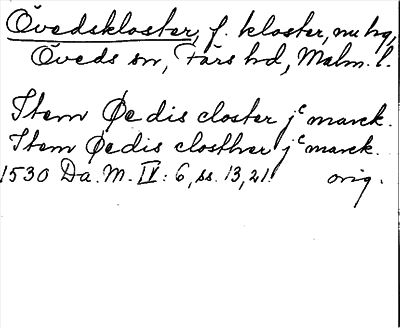 Övedskloster, f. kloster, nu hg,
Öveds sn, Färs hd, Malm. l.
Item Øedis closter jc marck.
Item Øedis closther jc marck.
1530 Da. M. IV: 6, ss. 13, 21. orig.